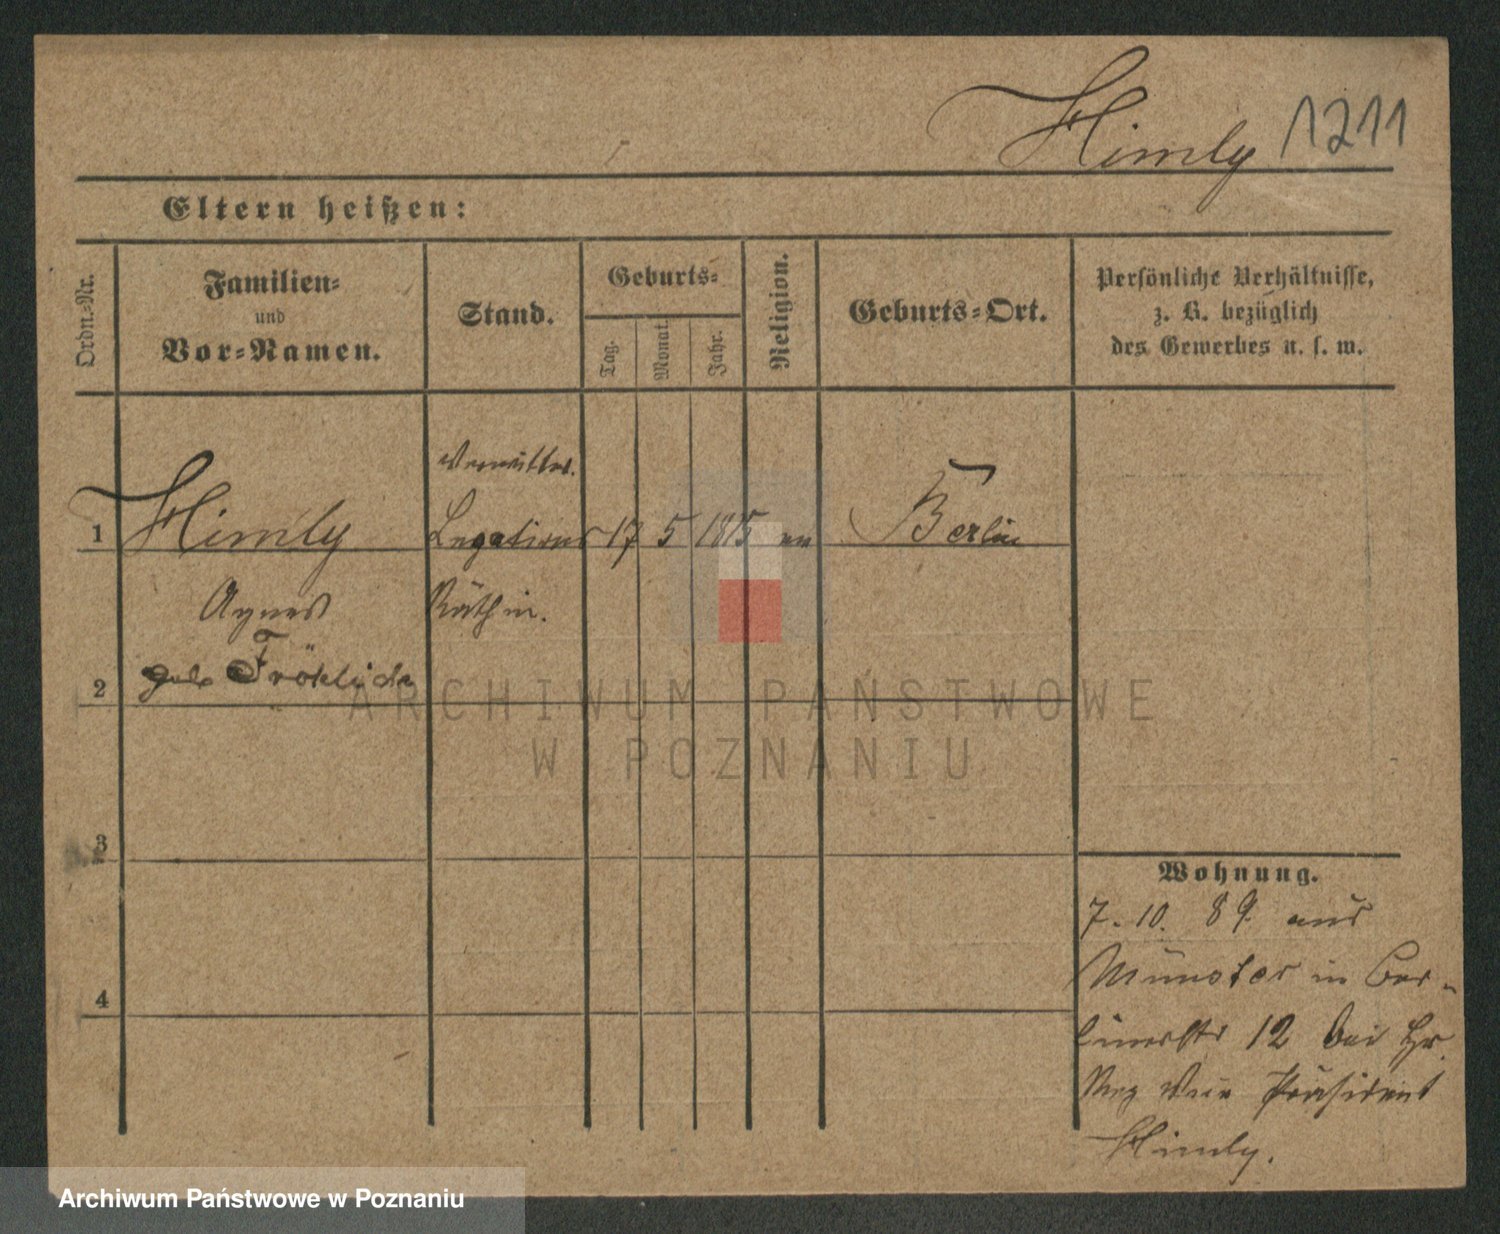 Himly 1211
Eltern heißen:
Ordn.-Nr.
Familien-
und
Vor-Namen.
Stand.
Geburts-
Tag.
Monat.
Jahr.
Religion.
Geburts-Ort.
Persönliche Verhältnisse,
z. B. bezüglich
des Gewerbes u. s. w.
verwittw.
1 Himly Legations 17 5 1815 ev Berlin
Agnes Räthin.
2 geb. Fröhlich
3
4
Wohnung.
7. 10. 89. aus
Münster in Ber-
linerstr 12 bei Hr.
Reg Präsident
Himly.
ARCHIWUM PAŃSTWOWE
W POZNANIU
Archiwum Państwowe w Poznaniu